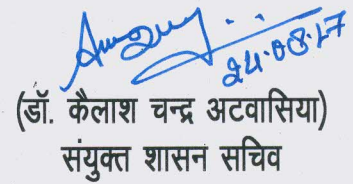 24.08.17
(डॉ. कैलाश चन्द्र अटवासिया)
संयुक्त शासन सचिव